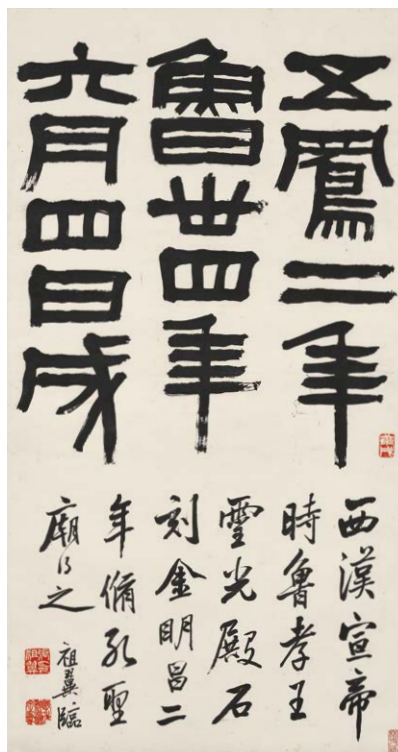 五鳳二年
魯卅四年
六月四日成
西漢宣帝
時魯孝王
靈光殿石
刻金明昌二
年脩孔聖
廟得之
祖翼臨